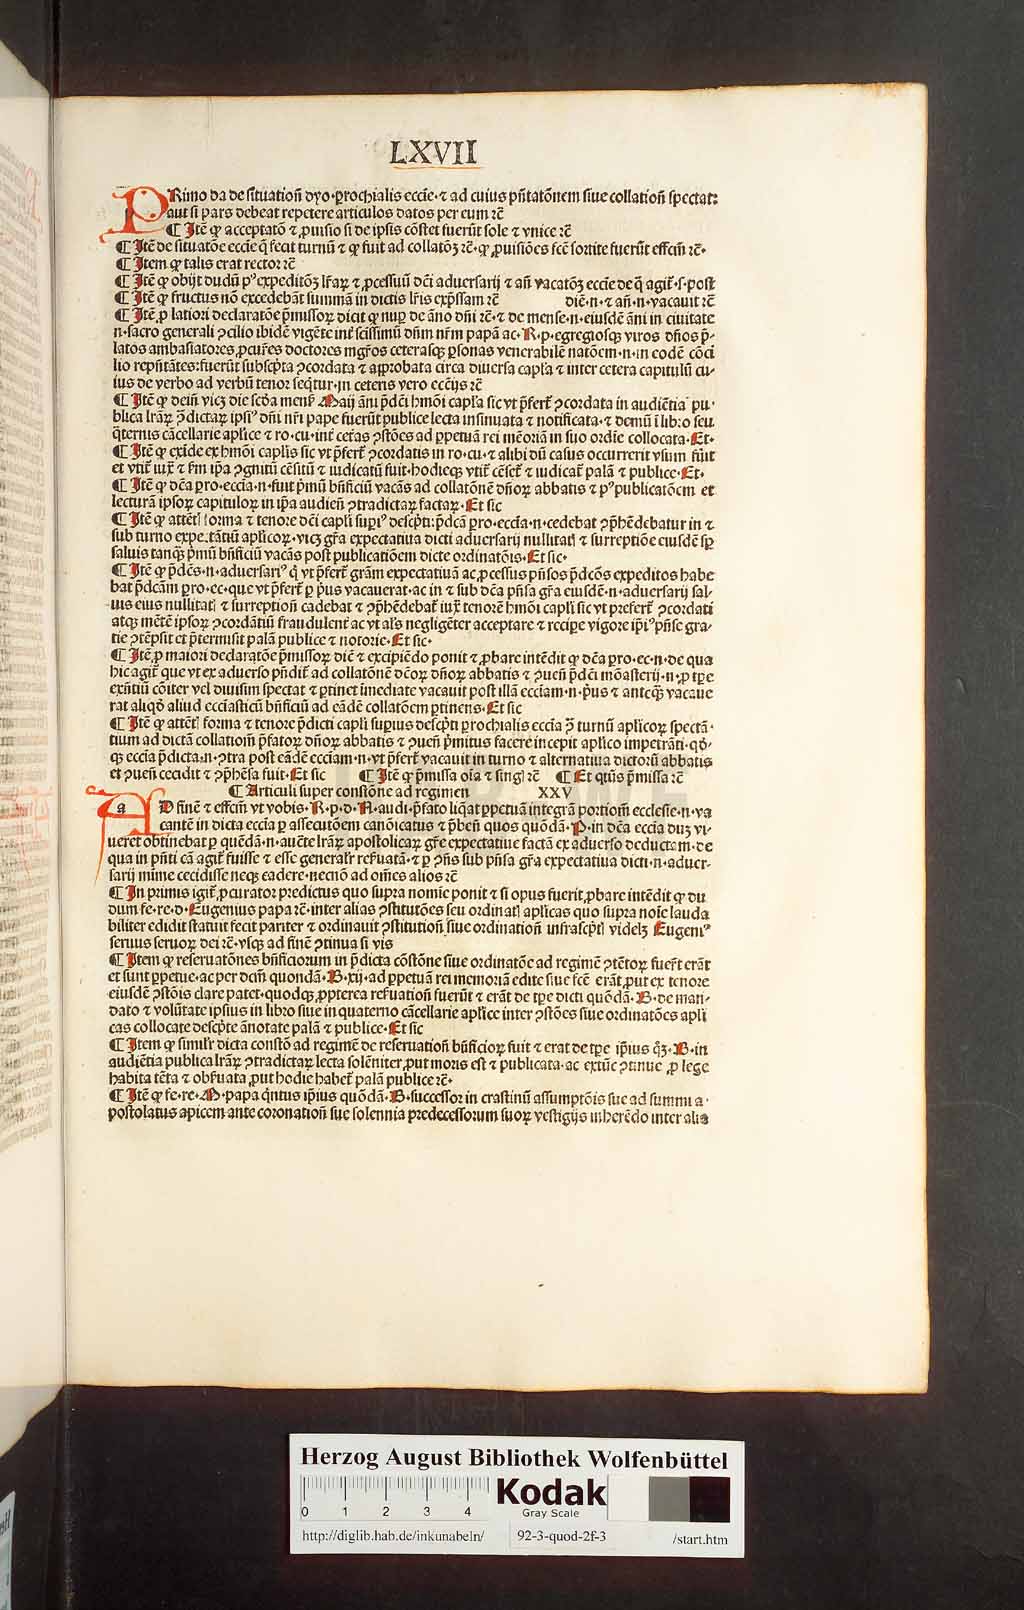 LXVII
PRimo da de situation̄ dyo·ꝑrochialis eccīe·⁊ ad cuius pn̄tatōnem siue collation̄ spectat:
aut si pars debeat repetere articulos datos per eum rc̄
¶ Itē ꝙ acceptatō ⁊ ꝓuisio si de ipsis cōstet fuerūt sole ⁊ vnice rc̄
¶ Itē de situatōe eccīe q̄ fecit turnū ⁊ ꝙ fuit ad collatōꝫ rc̄· ꝙ ꝓuisiōes scē sortite fuerūt effcm̄ rc̄·
¶ Item ꝙ talis erat rector rc̄
¶ Itē ꝙ obijt dudū pꝰ expeditōꝫ lr̄aꝝ ⁊ ꝓcessuū dc̄i aduersarij ⁊ an̄ vacatōꝫ eccīe de q̄ agit̄·s·post
¶ Itē ꝙ fructus nō excedebāt summā in dictis lr̄is exp̄ssam rc̄ diē·n·⁊ an̄·n·vacauit rc̄
¶ Itē ꝓ latiori declaratōe p̄missoꝝ dicit ꝙ nuꝑ de āno dn̄i rc̄·⁊ de mense·n·eiusdē āni in ciuitate
n·sacro generali ꝯcilio ibidē vigēte int̄ scīssimū dn̄m nr̄m papā ac·R·p·egregiosqꝫ viros dn̄os p̄-
latos ambasiatores ꝓcur̄es doctores mgr̄os ceterasqꝫ ꝑsonas venerabilē natōem·n·in eodē cōci
lio repn̄tātes:fuerūt subscp̄ta ꝯcordata ⁊ approbata circa diuersa capl̄a ⁊ inter cetera capitulū cu-
ius de verbo ad verbū tenor seq̄tur·in ceteris vero ecc̄ijs rc̄
¶ Itē ꝙ dein̄ vicꝫ die scd̄a mens̄ Maij āni p̄dc̄i hmōi capl̄a sic vt p̄fert̄ ꝯcordata in audiētia pu-
blica lr̄aꝝ ꝯdictaꝝ ipsiꝰ dn̄i nr̄i pape fuerūt publice lecta insinuata ⁊ notificata·⁊ demū ī libro seu
q̄ternis cācellarie aplīce ⁊ ro·cu·int̄ cet̄as ꝯstōes ad ꝑpetuā rei mēoriā in suo ordīe collocata·Et·
¶ Itē ꝙ exīde ex hmōi capl̄is sic vt p̄fert̄ ꝯcordatis in ro·cu·⁊ alibi dū casus occurrerit vsum fuit
et vtit̄ iux̄ ⁊ fm̄ ip̄a ꝯgnitū cēsitū ⁊ iudicatū fuit·hodieqꝫ vtit̄ cēset̄ ⁊ iudicat̄ palā ⁊ publice·Et·
¶ Itē ꝙ dc̄a ꝑro·eccīa·n·fuit p̄mū bn̄ficiū vacās ad collatōnē dn̄oꝝ abbatis ⁊ pꝰ publicatōem et
lecturā ipsoꝝ capituloꝝ in ip̄a audien̄ ꝯtradictaꝝ factaꝝ·Et sic
sub turno expectātiū aplīcoꝝ·vicꝫ gr̄a expectatiua dicti aduersarij nullitatꝭ ⁊ surreptiōe eiusdē sp̄
saluis tanqꝫ p̄mū bn̄ficiū vacās post publicatiōem dicte ordinatōis·Et sic·
¶ Itē ꝙ p̄dc̄s·n·aduersariꝰ q̄ vt p̄fert̄ grām expectatiuā ac ꝓcessus pn̄sos p̄dcōs expeditos habe
bat p̄dcām ꝑro·ec·que vt p̄fert̄ ꝑ pr̄us vacauerat·ac in ⁊ sub dc̄a pn̄sa gr̄a eiusdē·n·aduersarij sal-
uis eius nullitatꝭ ⁊ surreption̄ cadebat ⁊ ꝯp̄hēdebat̄ iux̄ tenorē hmōi capl̄i sic vt prefert̄ ꝯcordati
atqꝫ mētē ipsoꝝ ꝯcordātiū fraudulent̄ ac vt al̄s negligēter acceptare ⁊ reciꝑe vigore ip̄iꝰ pn̄se gra-
tie ꝯtēpsit et p̄termisit palā publice ⁊ notorie·Et sic·
¶ Itē ꝓ maiori declaratōe p̄missoꝝ diē ⁊ excipiēdo ponit ⁊ ꝓbare intēdit ꝙ dc̄a ꝑro·ec·n·de qua
hic agit̄ que vt ex aduerso pn̄dit̄ ad collatōnē dcōꝝ dn̄oꝝ abbatis ⁊ ꝯuen̄ p̄dc̄i mōasterij·n·ꝓ tꝑe
exn̄tiū cōiter vel diuisim spectat ⁊ ꝑtinet īmediate vacauit post illā ecciam·n·pr̄us ⁊ anteqꝫ vacaue
rat aliqd̄ aliud ecciasticū bn̄ficiū ad eādē collatōem ꝑtinens·Et sic
tium ad dictā collatiom̄ p̄fatoꝝ dn̄oꝝ abbatis ⁊ ꝯuen̄ p̄mitus facere incepit aplīco impetrāti·qd̄-
qꝫ eccīa p̄dicta·n·ꝯtra post eādē ecciam·n·vt p̄fert̄ vacauit in turno ⁊ alternatiua dictorū abbatis
et ꝯuen̄ cecidit ⁊ ꝯp̄hēsa fuit·Et sic ¶ Itē ꝙ p̄missa oīa ⁊ singl̄ rc̄ ¶ Et qtūs p̄missa rc̄
¶ Articuli super constiōne ad regimen XXV
AD finē ⁊ effcm̄ vt vobis·R·p·d·A·audi·p̄fato liq̄at ꝑpetuā integrā portiom̄ ecclesie·n·va
cantē in dicta eccīa ꝑ assecutōem canōicatus ⁊ p̄ben̄ quos quōdā·P·in dc̄a eccīa duꝫ vi-
ueret obtinebat ꝑ quēdā·n·auctē lr̄aꝝ apostolicaꝝ gr̄e expectatiue factā ex aduerso deductam·de
qua in pn̄ti cā agit̄ fuisse ⁊ esse generalr̄ reẜuatā·⁊ ꝑ ꝯn̄s sub pn̄sa gr̄a expectatiua dicti·n·aduer-
sarij mīme cecidisse neqꝫ cadere·necnō ad om̄es alios rc̄
¶ In primis igit̄ ꝓcurator predictus quo supra nomīe ponit ⁊ si opus fuerit ꝓbare intēdit ꝙ du
dum fe·re·d·Eugenius papa rc̄·inter alias ꝯstitutōes seu ordinatꝭ aplīcas quo supra noīe lauda
biliter edidit statuit fecit pariter ⁊ ordinauit ꝯstitution̄ siue ordination̄ infrascp̄tꝭ videlꝫ Eugeniꝰ
seruus seruoꝝ dei rc̄·vsqꝫ ad finē ꝯtinua si vis
¶ Item ꝙ reseruatōnes bn̄ficiorum in p̄dicta cōstōne siue ordinatōe ad regimē ꝯtētoꝝ fuer̄t erāt
et sunt ꝑpetue·ac per dcm̄ quondā·B·xij·ad ꝑpetuā rei memoriā edite siue fcē erāt ꝓut ex tenore
eiusdē ꝯstōis clare patet·quodqꝫ ꝓpterea reẜuation̄ fuerūt ⁊ erāt de tꝑe dicti quōdā·B·de man-
dato ⁊ volūtate ipsius in libro siue in quaterno cācellarie aplīce inter ꝯstōes siue ordinatōes apl̄i
cas collocate descp̄te ānotate palā ⁊ publice·Et sic
¶ Item ꝙ similr̄ dicta constō ad regimē de reseruation̄ bn̄ficioꝝ fuit ⁊ erat de tꝑe ip̄ius qꝫ·B·in
audiētia publica lr̄aꝝ ꝯtradictaꝝ lecta solēniter ꝓut moris est ⁊ publicata·ac extūc ꝯtinue ꝓ lege
habita tēta ⁊ obẜuata ꝓut hodie habet̄ palā publice rc̄·
¶ Itē ꝙ fe·re·N·papa qn̄tus ip̄ius quōdā·B·successor in crastinū assumptōis sue ad summi a-
postolatus apicem ante coronation̄ sue solennia predecessorum suoꝝ vestigijs inherēdo inter alia
Herzog August Bibliothek Wolfenbüttel
0 1 2 3 4
Kodak
Gray Scale
http://diglib.hab.de/inkunabeln/ 92-3-quod-2f-3 /start.htm